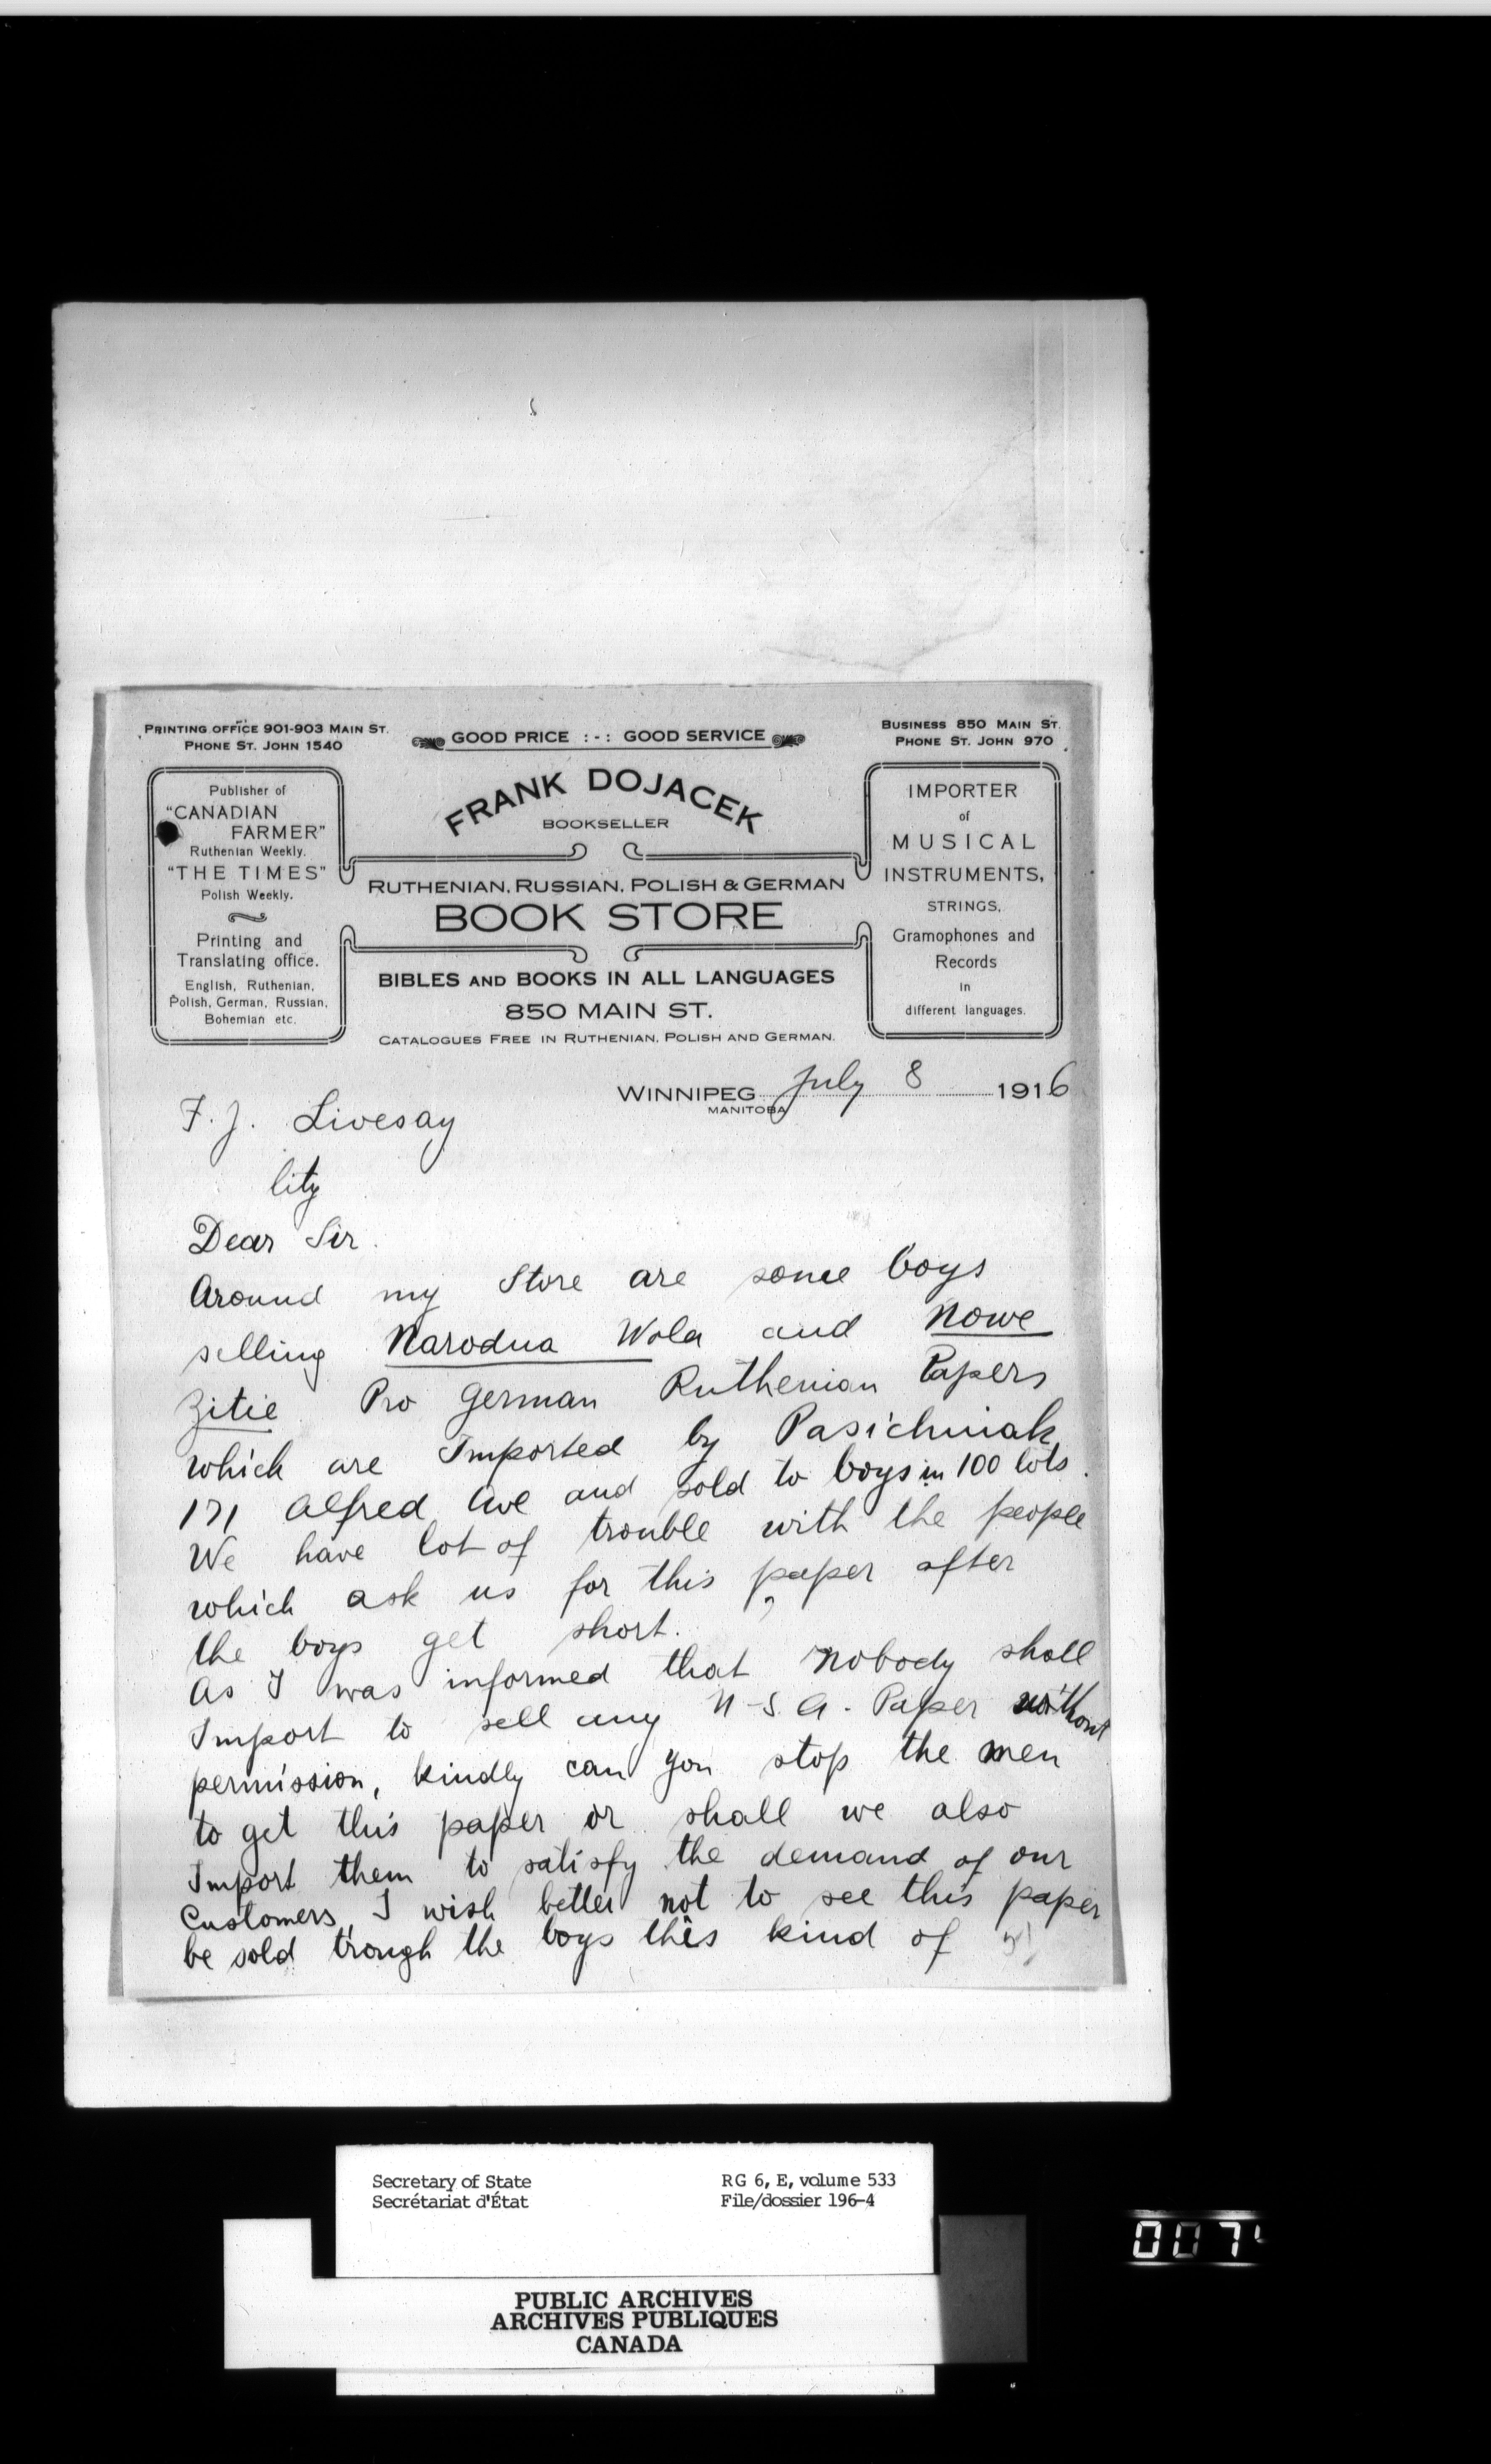 PRINTING OFFICE 901-903 MAIN ST.
PHONE ST. JOHN 1540
GOOD PRICE :-: GOOD SERVICE
BUSINESS 850 MAIN ST.
PHONE ST. JOHN 970
Publisher of
"CANADIAN
FARMER"
Ruthenian Weekly.
"THE TIMES"
Polish Weekly.
Printing and
Translating office.
English, Ruthenian,
Polish, German, Russian,
Bohemian etc.
FRANK DOJACEK
BOOKSELLER
RUTHENIAN, RUSSIAN, POLISH & GERMAN
BOOK STORE
BIBLES AND BOOKS IN ALL LANGUAGES
850 MAIN ST.
CATALOGUES FREE IN RUTHENIAN, POLISH AND GERMAN.
IMPORTER
of
MUSICAL
INSTRUMENTS,
STRINGS,
Gramophones and
Records
in
different languages.
WINNIPEG July 8 1916
MANITOBA
F. J. Livesay
City
Dear Sir.
Around my Store are some boys
selling Narodna Wola and Nowe
Zitie Pro German Ruthenian Papers
which are Imported by Pasichniak
171 Alfred Ave and sold to boys in 100 lots.
We have lot of trouble with the people
which ask us for this paper after
the boys get short.
As I was informed that nobody shall
Import to sell any U-S.A. Paper without
permission, kindly can you stop the men
to get this paper or shall we also
Import them to satisfy the demand of our
Customers, I wish better not to see this paper
be sold trough the boys this kind of
Secretary of State
Secrétariat d'État
RG 6, E, volume 533
File/dossier 196-4
PUBLIC ARCHIVES
ARCHIVES PUBLIQUES
CANADA
007